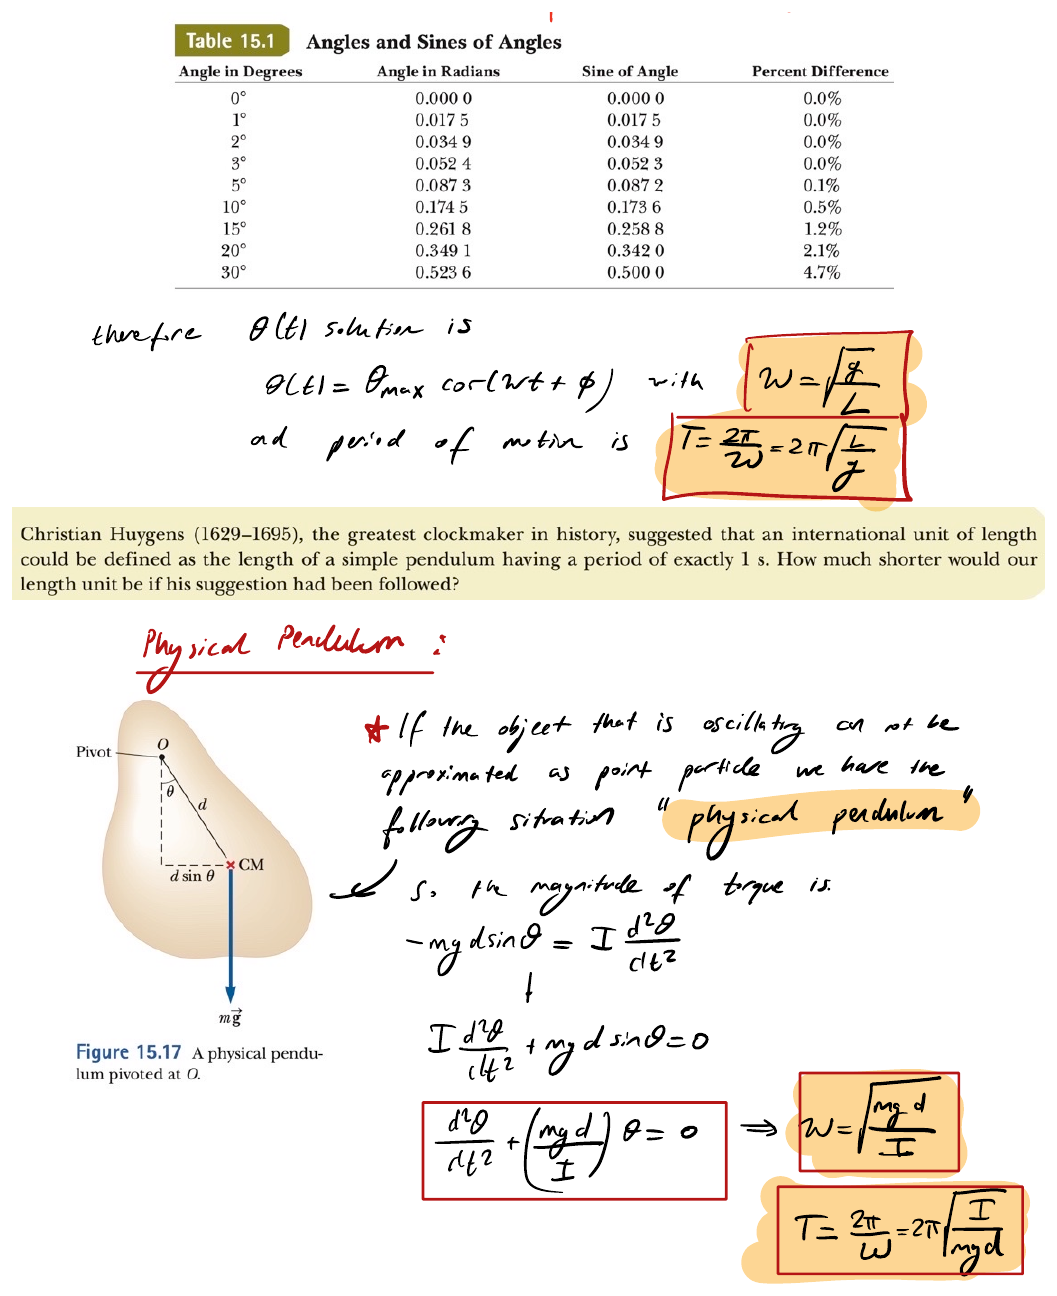 Table 15.1 Angles and Sines of Angles
Angle in Degrees Angle in Radians Sine of Angle Percent Difference
0° 0.000 0 0.000 0 0.0%
1° 0.017 5 0.017 5 0.0%
2° 0.034 9 0.034 9 0.0%
3° 0.052 4 0.052 3 0.0%
5° 0.087 3 0.087 2 0.1%
10° 0.174 5 0.173 6 0.5%
15° 0.261 8 0.258 8 1.2%
20° 0.349 1 0.342 0 2.1%
30° 0.523 6 0.500 0 4.7%
therefore θ(t) solution is
θ(t) = θmax cos(wt + φ) with w = √(g/L)
and period of motion is T = 2π/w = 2π√(L/g)
Christian Huygens (1629–1695), the greatest clockmaker in history, suggested that an international unit of length
could be defined as the length of a simple pendulum having a period of exactly 1 s. How much shorter would our
length unit be if his suggestion had been followed?
Physical Pendulum :
* If the object that is oscillating can not be
approximated as point particle we have the
following situation "physical pendulum"
So the magnitude of torque is.
-mg d sinθ = I d²θ/dt²
I d²θ/dt² + mg d sinθ = 0
d²θ/dt² + (mgd/I) θ = 0 ⇒ w = √(mgd/I)
T = 2π/w = 2π√(I/mgd)
Pivot
O
θ
d
CM
d sin θ
mg⃗
Figure 15.17 A physical pendu-
lum pivoted at O.